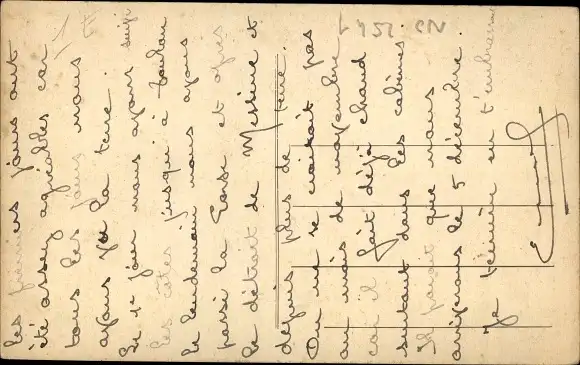 Les premiers jours ont
été assez agréables car
tous les jours nous
avons vu la terre.
Le 1er jour nous avons suivi
les côtes jusqu'à Toulon
le lendemain nous avons
passé la Corse et après
le détroit de Messine et
depuis plus de terre.
On ne se croirait pas
au mois de novembre
car il fait déjà chaud
surtout dans les cabines
Il parait que nous
arrivons le 5 décembre.
Je termine en t'embrassant
No 1524.1